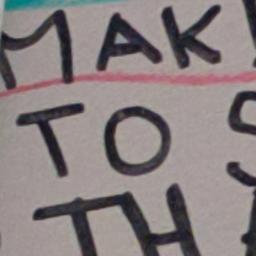 MAK
TO S
TH